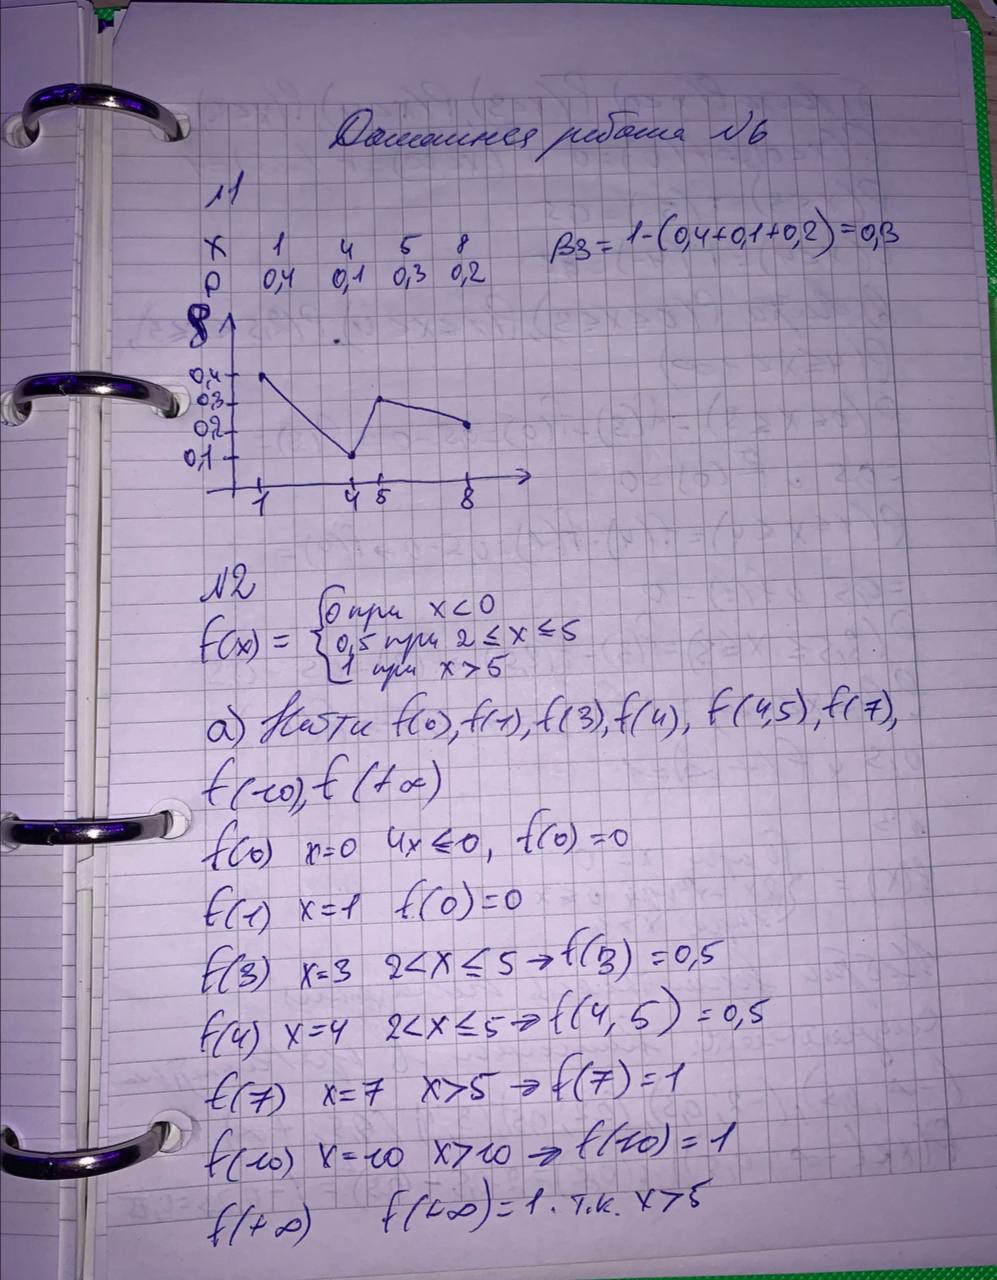 Домашняя работа №6
№1
X 1 4 5 8 β3 = 1-(0,4+0,1+0,2)=0,3
P 0,4 0,1 0,3 0,2
8
0,4
0,3
0,2
0,1
1 4 5 8
№2
f(x) = { 0 при x<0
0,5 при 2≤x≤5
1 при x>5
а) Найти f(0), f(1), f(3), f(4), f(4,5), f(7),
f(10), f(+∞)
f(0) x=0 4x≤0, f(0)=0
f(1) x=1 f(0)=0
f(3) x=3 2<x≤5→f(3)=0,5
f(4) x=4 2<x≤5→f(4,5)=0,5
f(7) x=7 x>5 →f(7)=1
f(10) x=10 x>10 →f(10)=1
f(+∞) f(+∞)=1. т.к. x>5